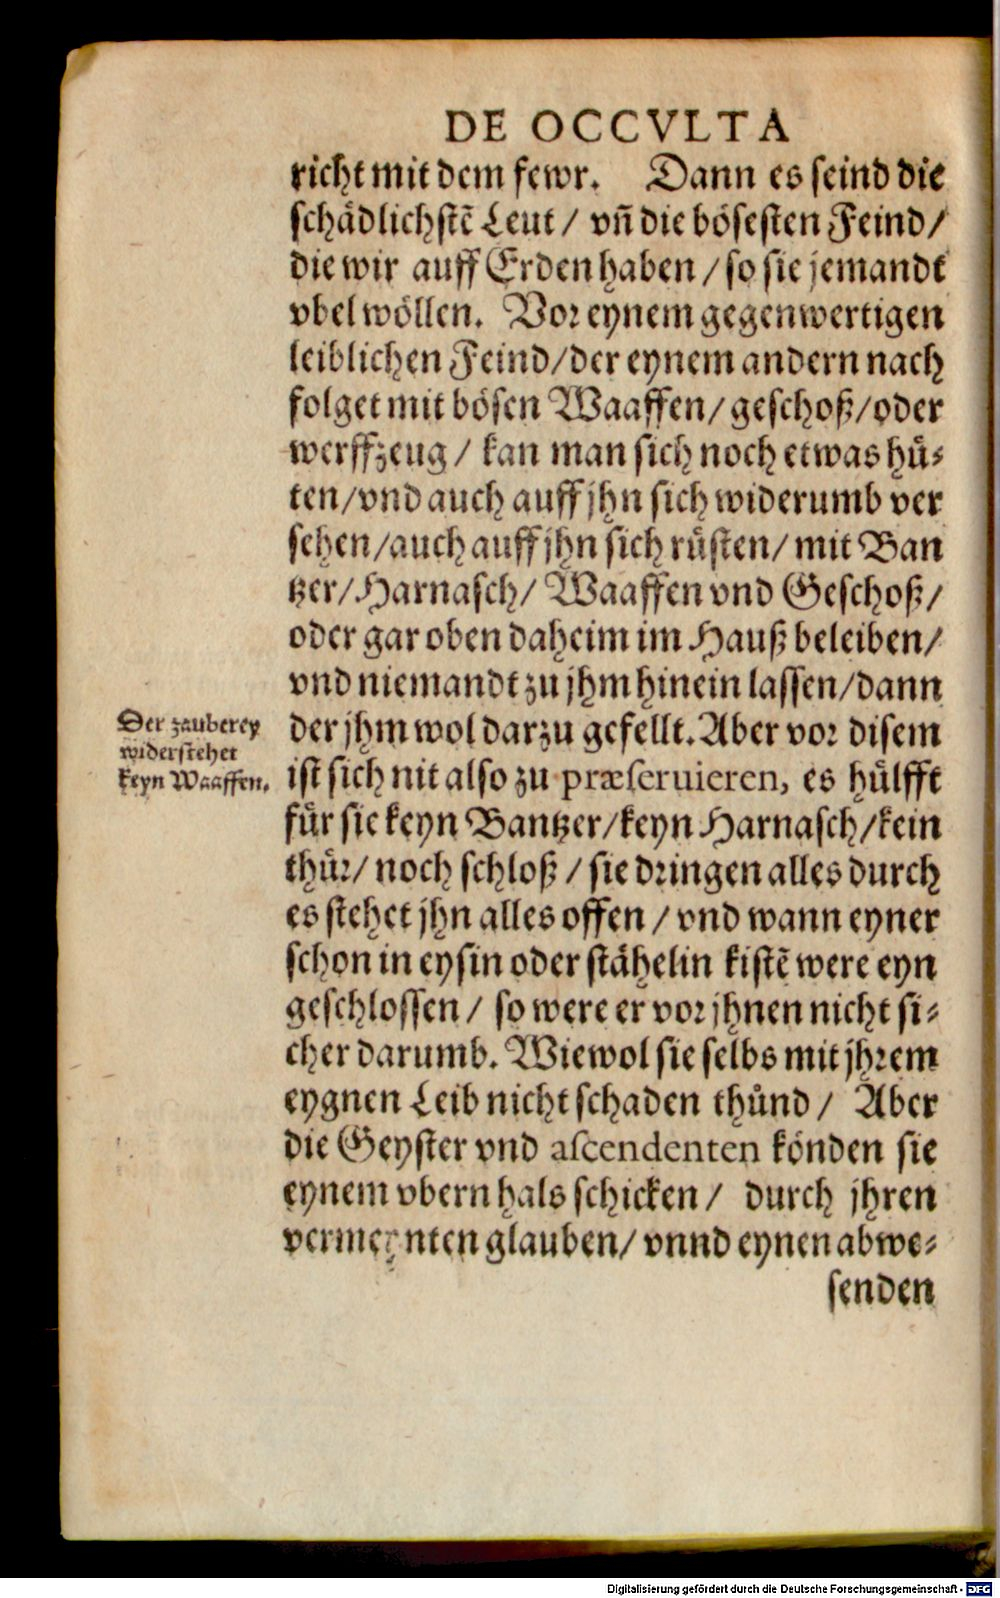 DE OCCVLTA
richt mit dem fewr. Dann es seind die
schådlichstẽ Leut / vñ die bősesten Feind /
die wir auff Erden haben / so sie jemandt
vbel wőllen. Vor eynem gegenwertigen
leiblichen Feind / der eynem andern nach
folget mit bősen Waaffen / geschoß / oder
werffzeug / kan man sich noch etwas hů⸗
ten / vnd auch auff jhn sich widerumb ver
sehen / auch auff jhn sich růsten / mit Ban
tzer / Harnasch / Waaffen vnd Geschoß /
oder gar oben daheim im Hauß beleiben /
vnd niemandt zu jhm hinein lassen / dann
der jhm wol darzu gefellt. Aber vor disem
ist sich nit also zu præseruieren, es hůlfft
fůr sie keyn Bantzer / keyn Harnasch / kein
thůr / noch schloß / sie dringen alles durch
es stehet jhn alles offen / vnd wann eyner
schon in eysin oder ståhelin kistẽ were eyn
geschlossen / so were er vor jhnen nicht si⸗
cher darumb. Wiewol sie selbs mit jhrem
eygnen Leib nicht schaden thůnd / Aber
die Geyster vnd ascendenten kőnden sie
eynem vbern hals schicken / durch jhren
vermeynten glauben / vnnd eynen abwe⸗
senden
Der zauberey
widerstehet
keyn Waaffen.
Digitalisierung gefördert durch die Deutsche Forschungsgemeinschaft - DFG